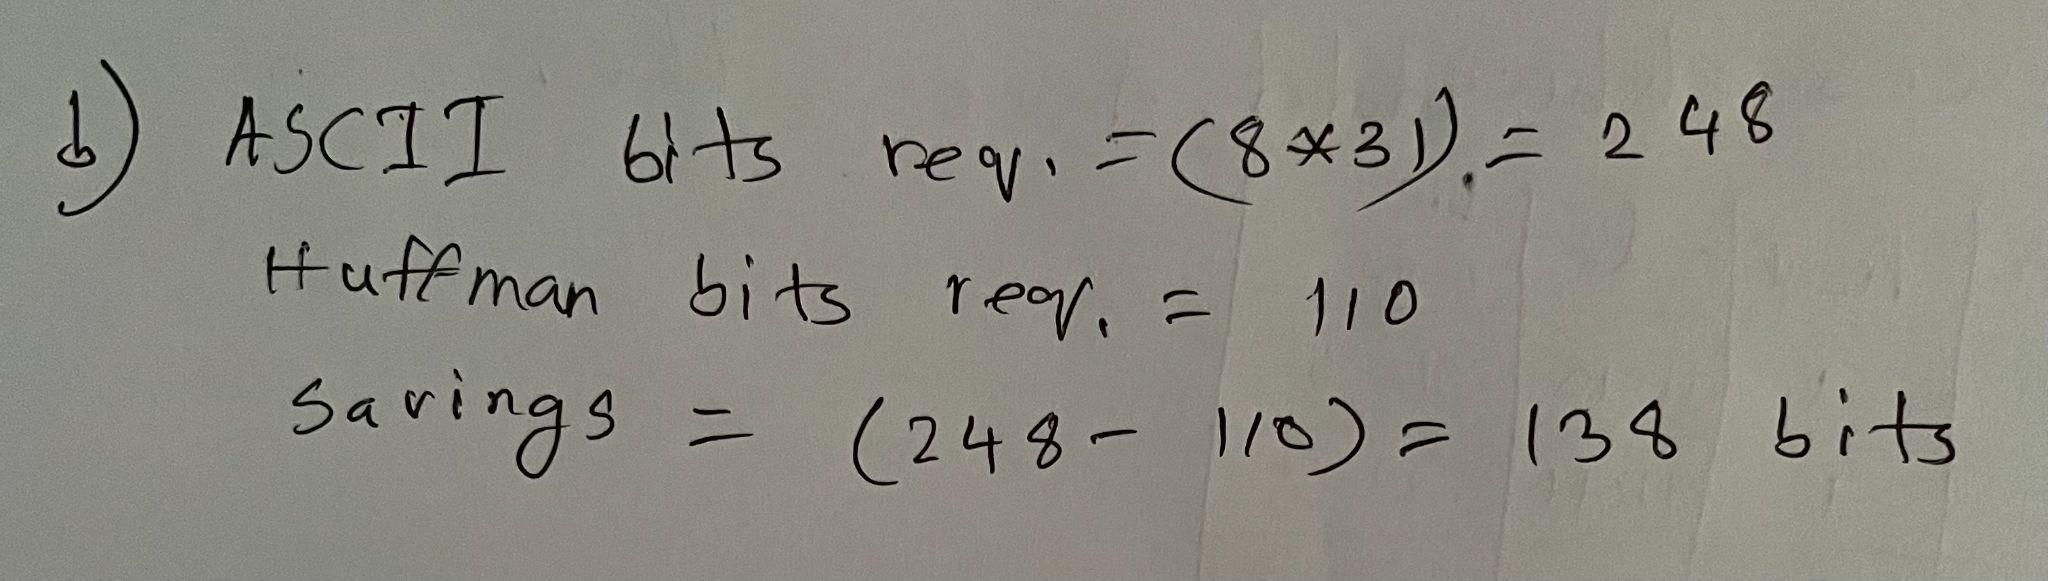 b) ASCII bits req. = (8*31) = 248
Huffman bits req. = 110
Savings = (248 - 110) = 138 bits